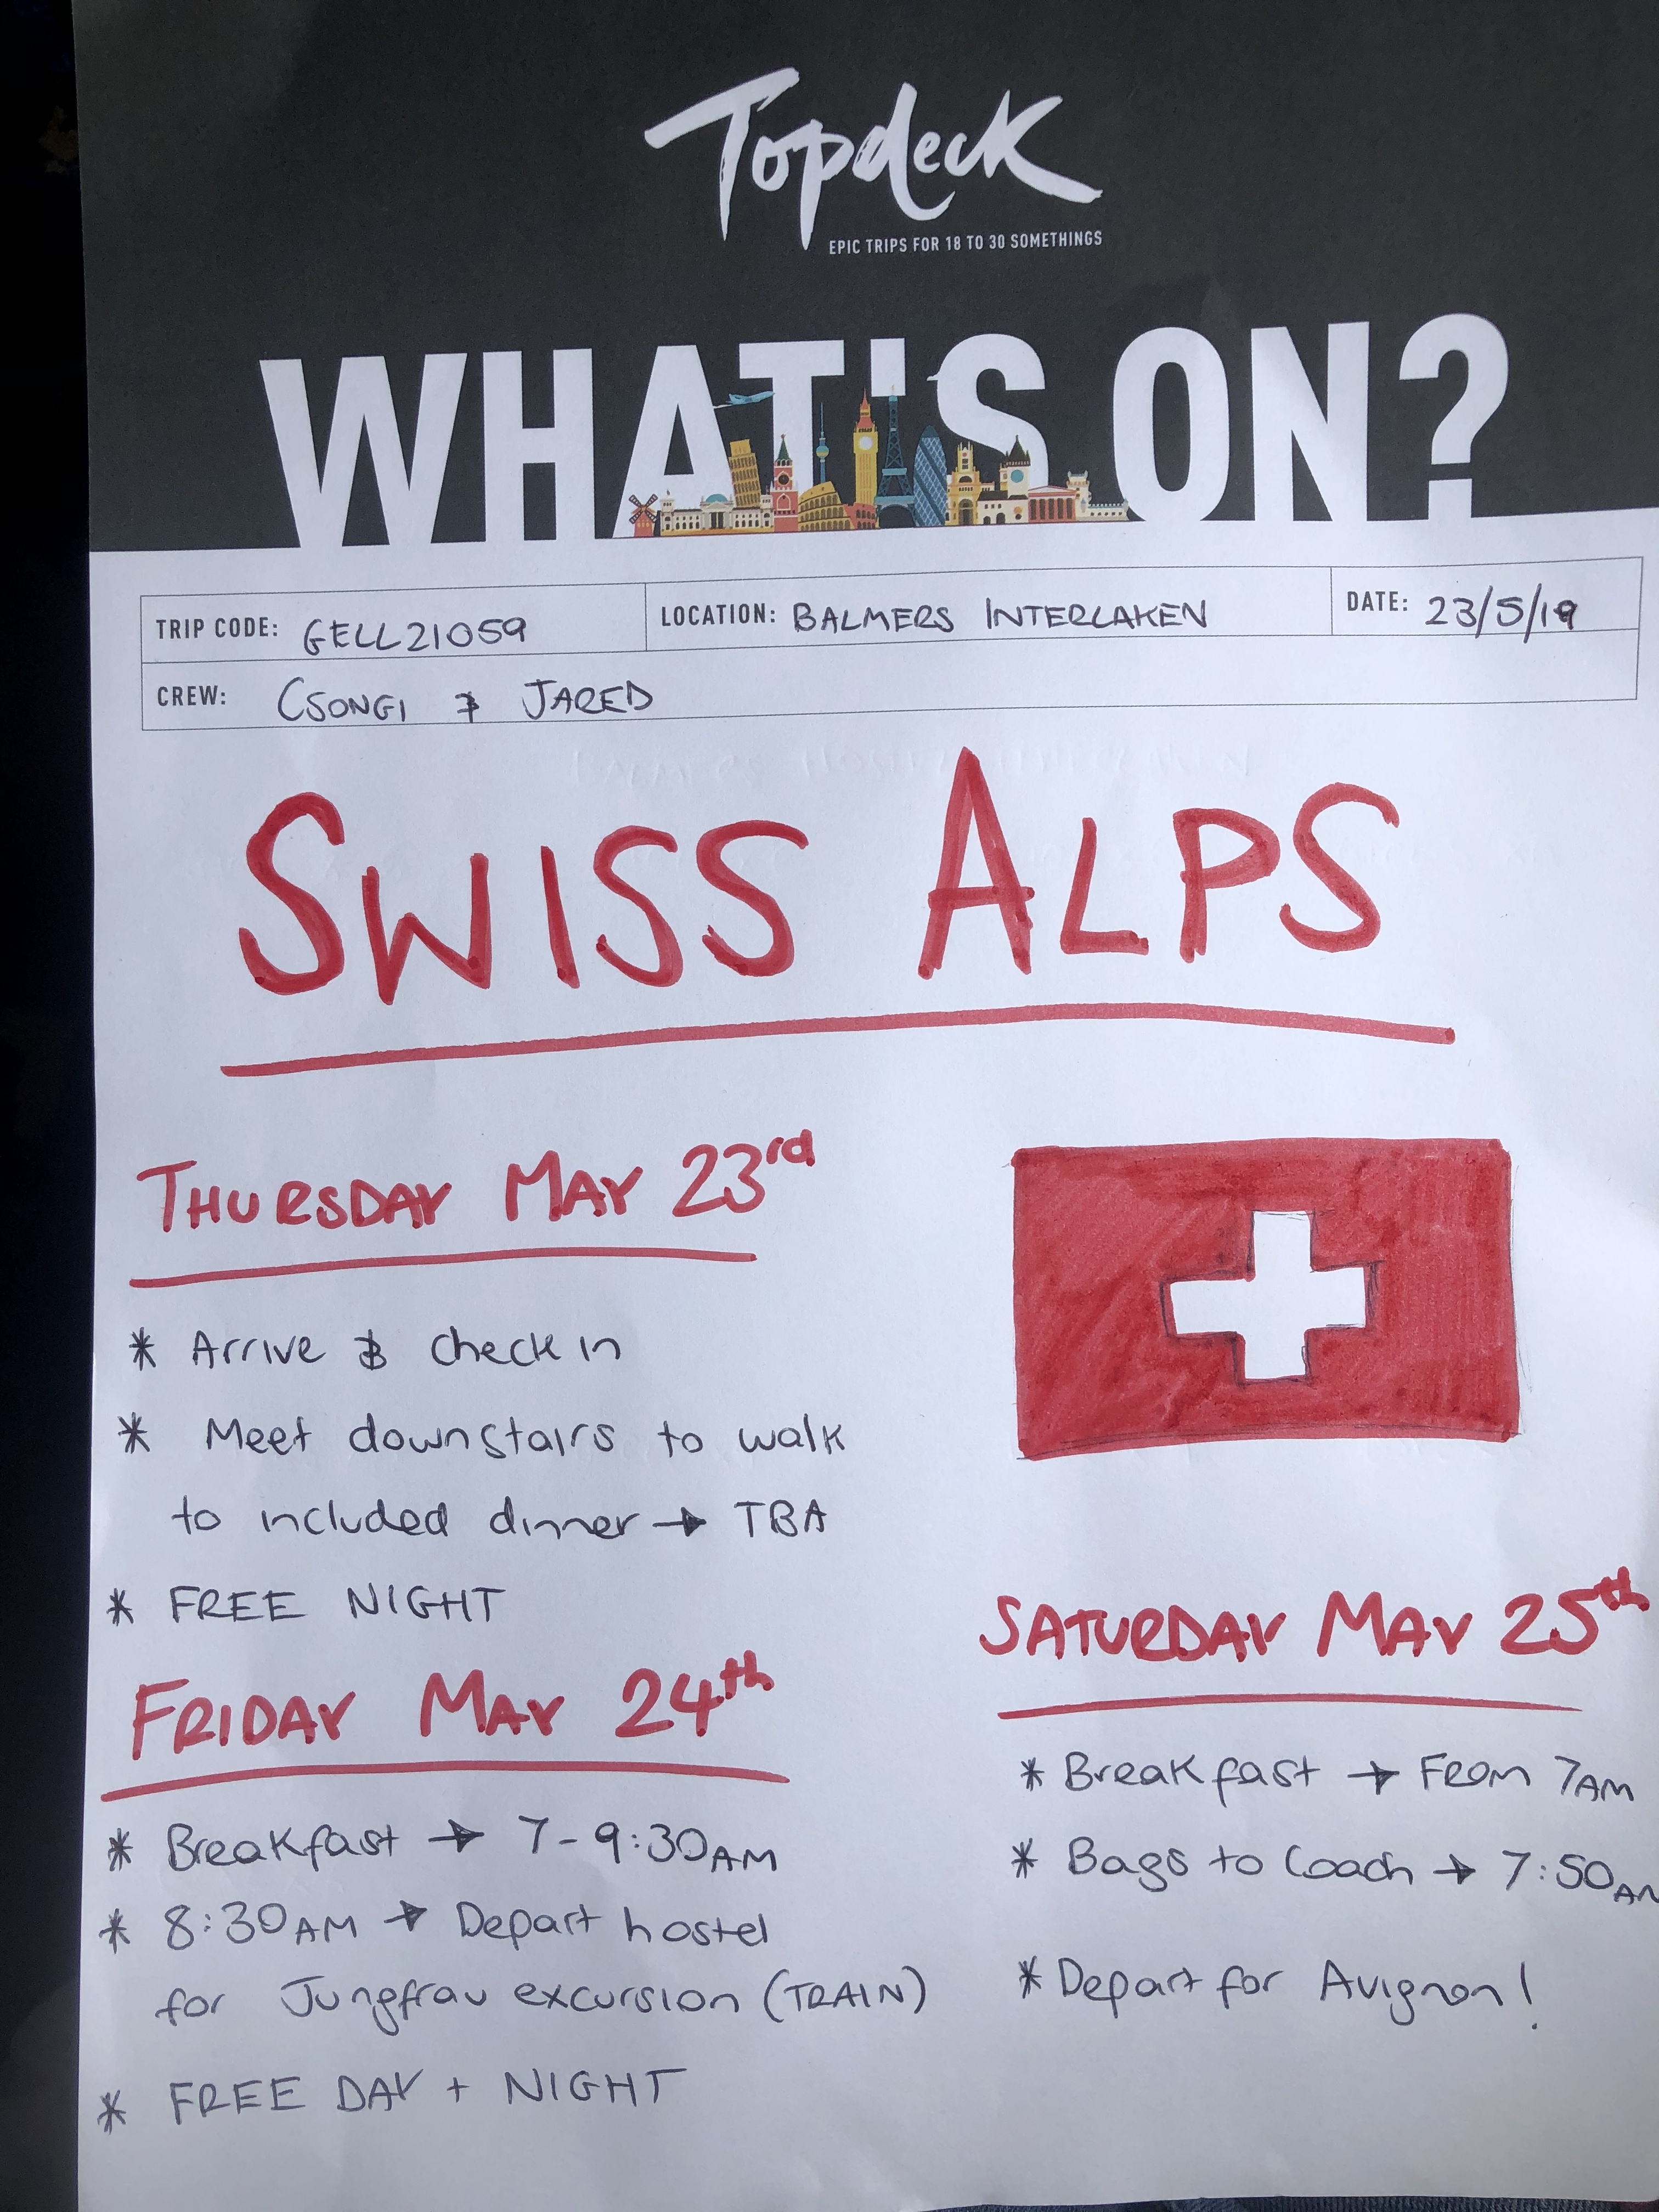 Topdeck
EPIC TRIPS FOR 18 TO 30 SOMETHINGS
WHAT'S ON?
TRIP CODE: GELL21059
LOCATION: BALMERS INTERLAKEN
DATE: 23/5/19
CREW: CSONGI & JARED
SWISS ALPS
THURSDAY MAY 23rd
* Arrive & check in
* Meet downstairs to walk
to included dinner → TBA
* FREE NIGHT
FRIDAY MAY 24th
* Breakfast → 7-9:30AM
* 8:30AM → Depart hostel
for Jungfrau excursion (TRAIN)
* FREE DAY + NIGHT
SATURDAY MAY 25th
* Breakfast → FROM 7AM
* Bags to Coach → 7:50AM
* Depart for Avignon!